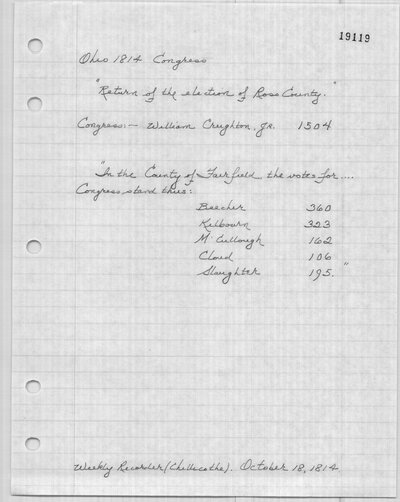 19119
Ohio 1814 Congress
"Return of the election of Ross County."
Congress:- William Creighton, Jr. 1504
"In the County of Fairfield the votes for....
Congress stand thus:
Beecher 360
Kilbourn 323
McCullough 162
Cloud 106
Slaughter 195."
Weekly Recorder (Chillicothe). October 18, 1814.